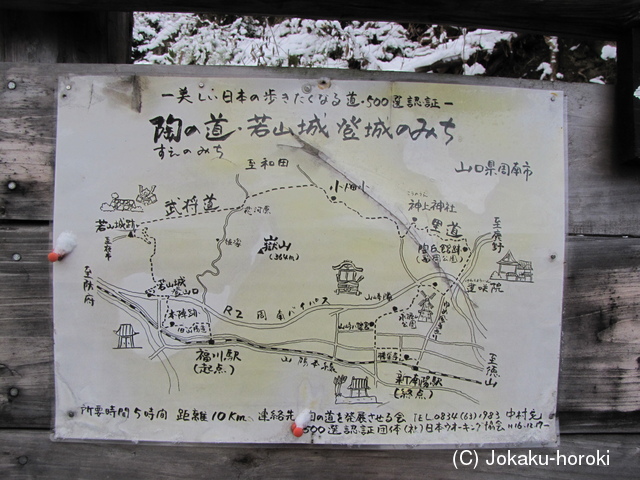 ー美しい日本の歩きたくなる道・500選認証ー
陶の道・若山城登城のみち
すえのみち
山口県周南市
至和田
武将道
神上神社
里道
若山城跡
嶽山
(364m)
至鹿野
若山城
登山口
至防府
本陣跡
R2 周南バイパス
福川駅
(起点)
山陽本線
新南陽駅
(終点)
至徳山
所要時間5時間 距離10Km 連絡先 陶の道を発展させる会 TEL 0834(63)1983 中村
500選認証団体(社)日本ウオーキング協会 H16.12.17-
(C) Jokaku-horoki